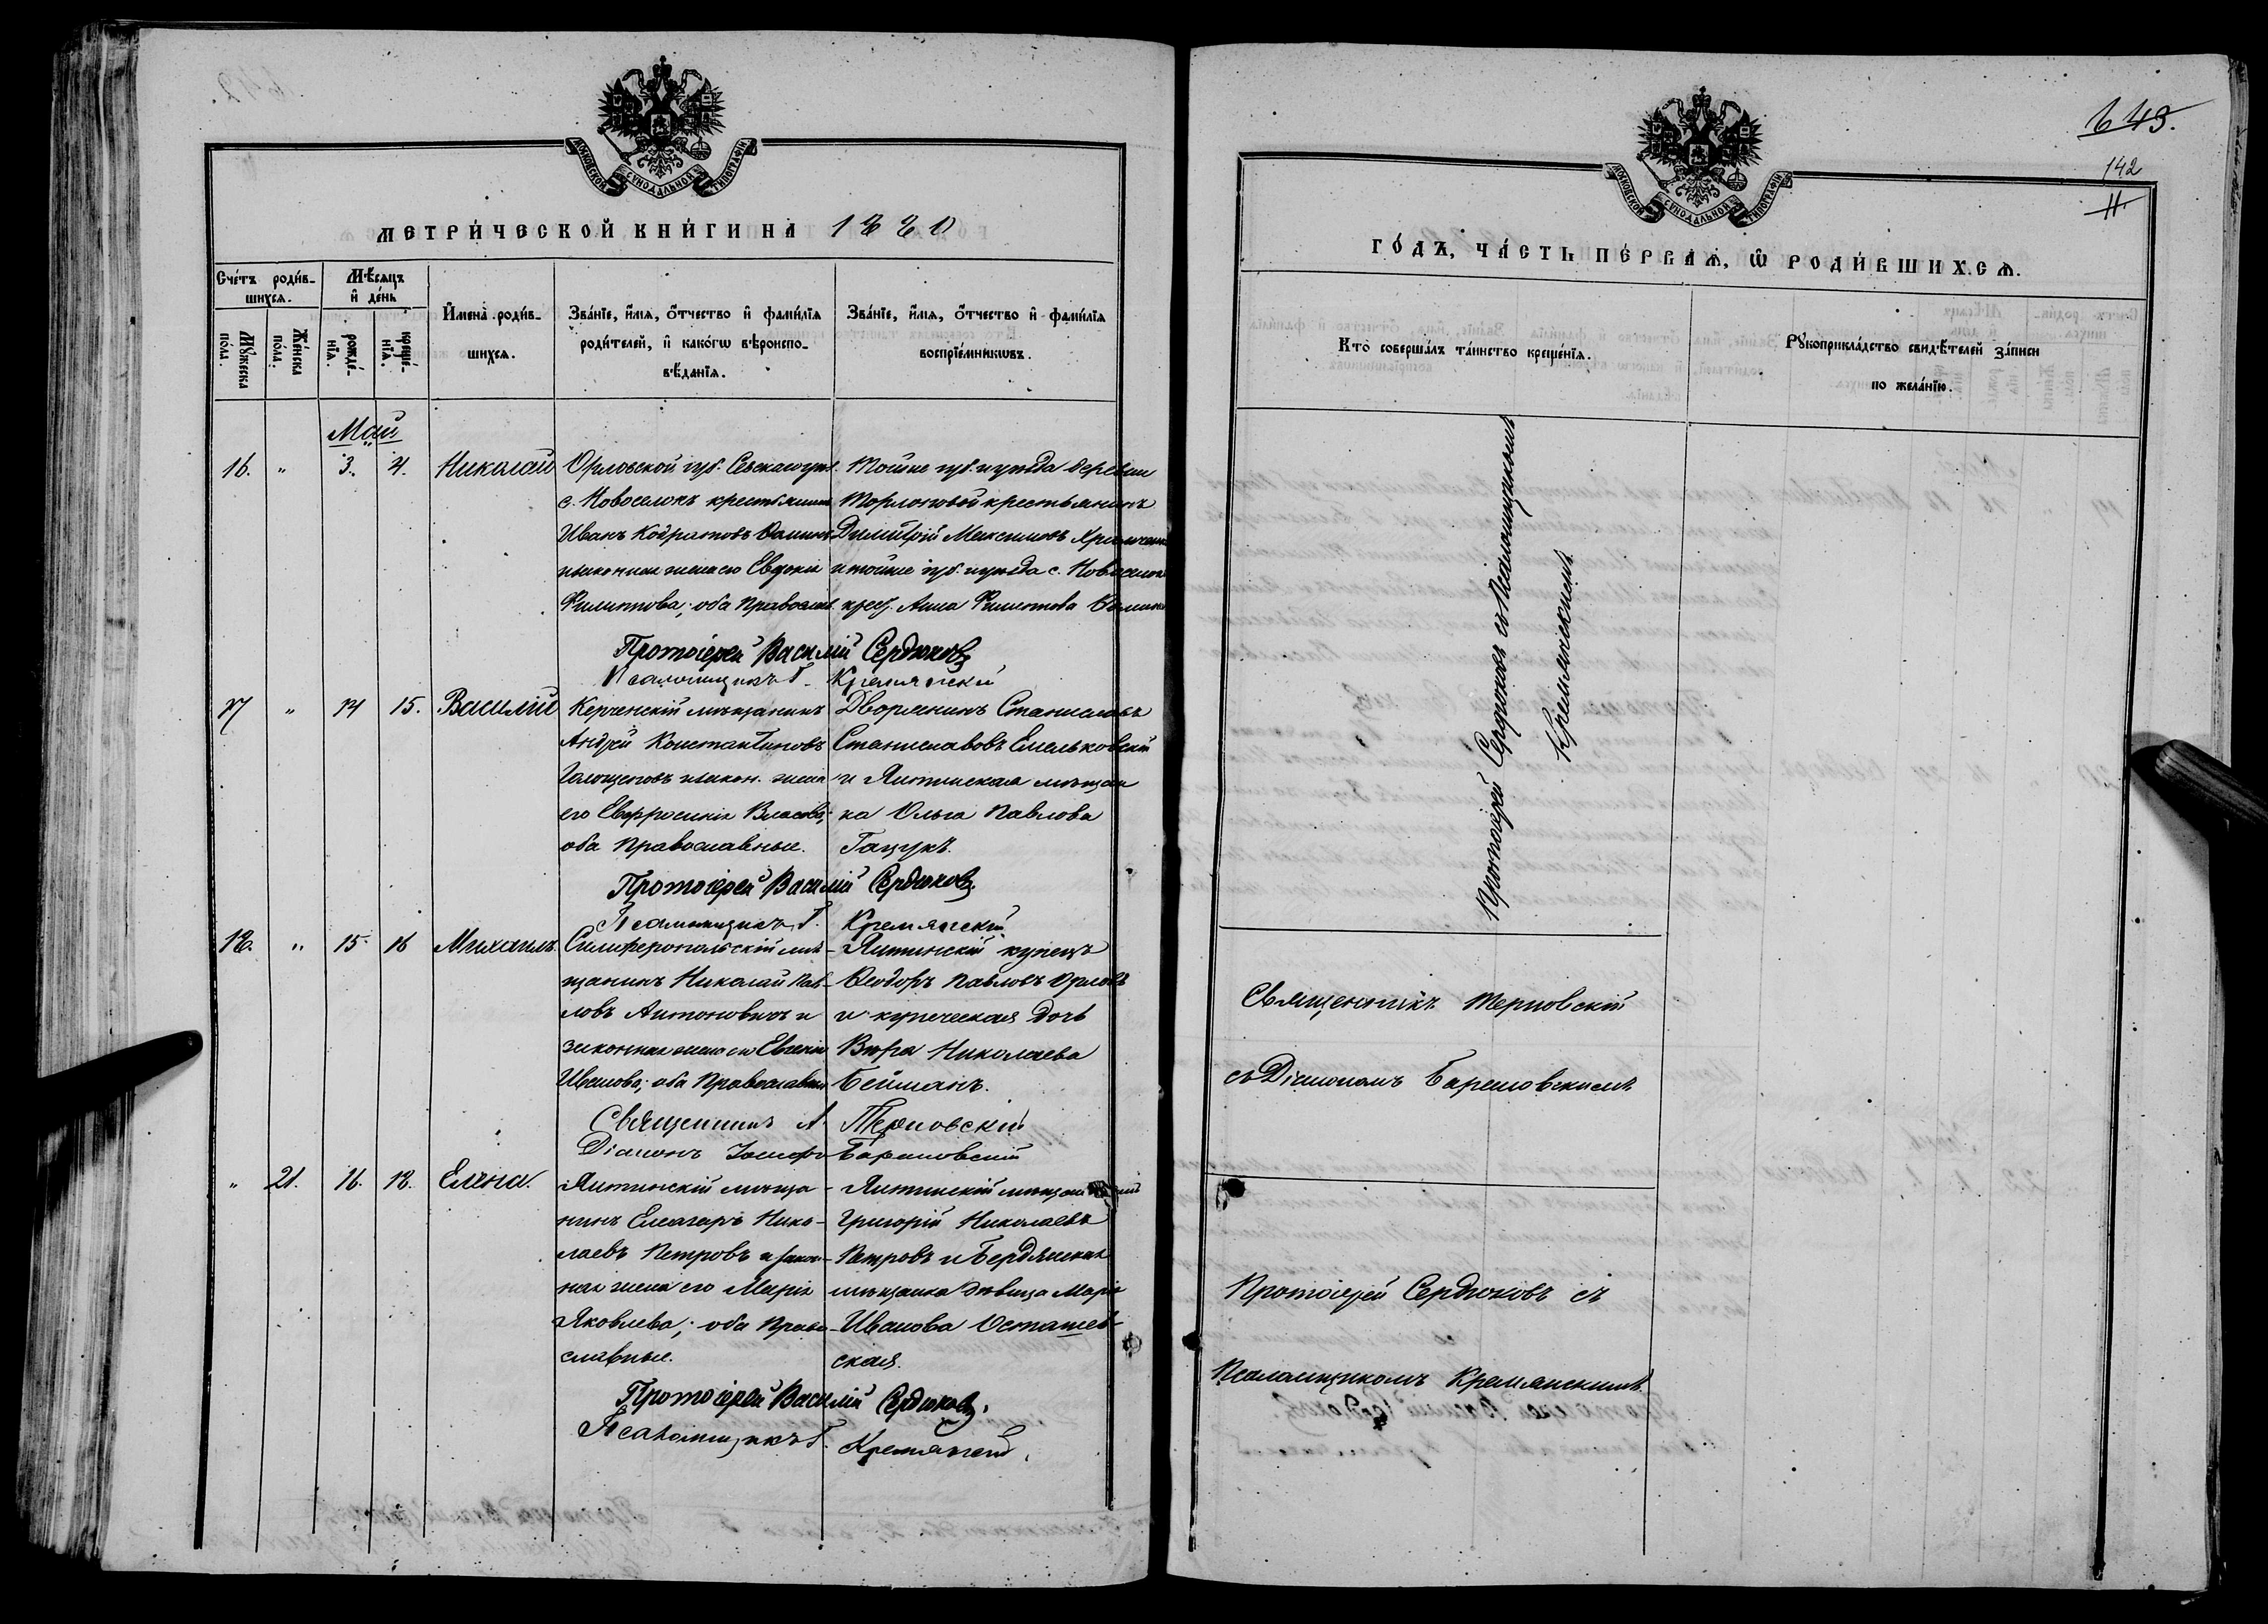 МОСКОВСКОЙ СѴНОДАЛЬНОЙ ТИПОГРАФІИ
МЕТРИ́ЧЕСКОЙ КНИ́ГИ НА 1880
Сче́тъ роди́вшихсѧ.
Мꙋ́жеска по́ла.
Же́нска по́ла.
Мѣ́сѧцъ и҆ де́нь
рожде́нїѧ.
креще́нїѧ.
И҆мена̀ роди́вшихсѧ.
Зва́нїе, и҆́мѧ, ѻ҆́тчество и҆ фами́лїѧ
роди́телей, и҆ како́гѡ вѣроиспо-
вѣ́данїѧ.
Зва́нїе, и҆́мѧ, ѻ҆́тчество и҆ фами́лїѧ
воспрїе́мникѡвъ.
Май
16. " 3. 4. Николай
Орловской губ. Севскаго уез.
с. Новоселокъ крестьянинъ
Иванъ Кодратовъ
законная жена его Евдокия
Филиппова; оба Православ.
Тойже губ. и уезда деревни
крестьянинъ
Димитрій Максимовъ
и тойже губ. и уезда с. Новоселокъ
крест. Анна Филиппова
Протоіерей Василій Сердюковъ
Псаломщикъ Г. Кремянскій
17 " 14 15. Василій
Керченскій мѣщанинъ
Андрей Константиновъ
Галощеповъ и закон. жена
его Евфросинія Власова;
оба Православные.
Дворянинъ Станиславъ
Станиславовъ Емельковскій
и Ялтинская мѣщан
ка Ольга Павлова
Гацукъ.
Протоіерей Василій Сердюковъ.
Псаломщикъ Г. Кремянскій
18. " 15. 16 Михаилъ.
Симферопольскій мѣ-
щанинъ Николай Пав-
ловъ Антоновичъ и
законная жена его Евгенія
Иванова; оба Православные
Ялтинскій купецъ
Ѳеодоръ Павловъ Орловъ
и купеческая дочь
Вѣра Николаева
Бейманъ.
Священникъ А. Терновскій
Діаконъ Іосифъ Барановскій
" 21. 16. 18. Елена.
Ялтинскій мѣща-
нинъ Елеазаръ Нико-
лаевъ Петровъ и закон-
ная жена его Марія
Яковлева; оба Право-
славные.
Ялтинскій мѣщанинъ
Григорій Николаевъ
Петровъ и Бердянская
мѣщанка девица Марія
Иванова Осташев-
ская.
Протоіерей Василій Сердюковъ.
Псаломщикъ Г. Кремянскій.
643.
142
11.
МОСКОВСКОЙ СѴНОДАЛЬНОЙ ТИПОГРАФІИ
ГО́ДЪ, ЧА́СТЬ ПЕ́РВАѦ, Ѡ҆ РОДИ́ВШИХСѦ.
Кто̀ соверша́лъ та́инство креще́нїѧ.
Рꙋкоприкла́дство свидѣ́телей за́писи
по жела́нїю.
Протоіерей Сердюковъ съ Псаломщикомъ
Кремянскимъ
Священникъ Терновскій
съ Діакономъ Барановскимъ
Протоіерей Сердюковъ съ
Псаломщикомъ Кремянскимъ